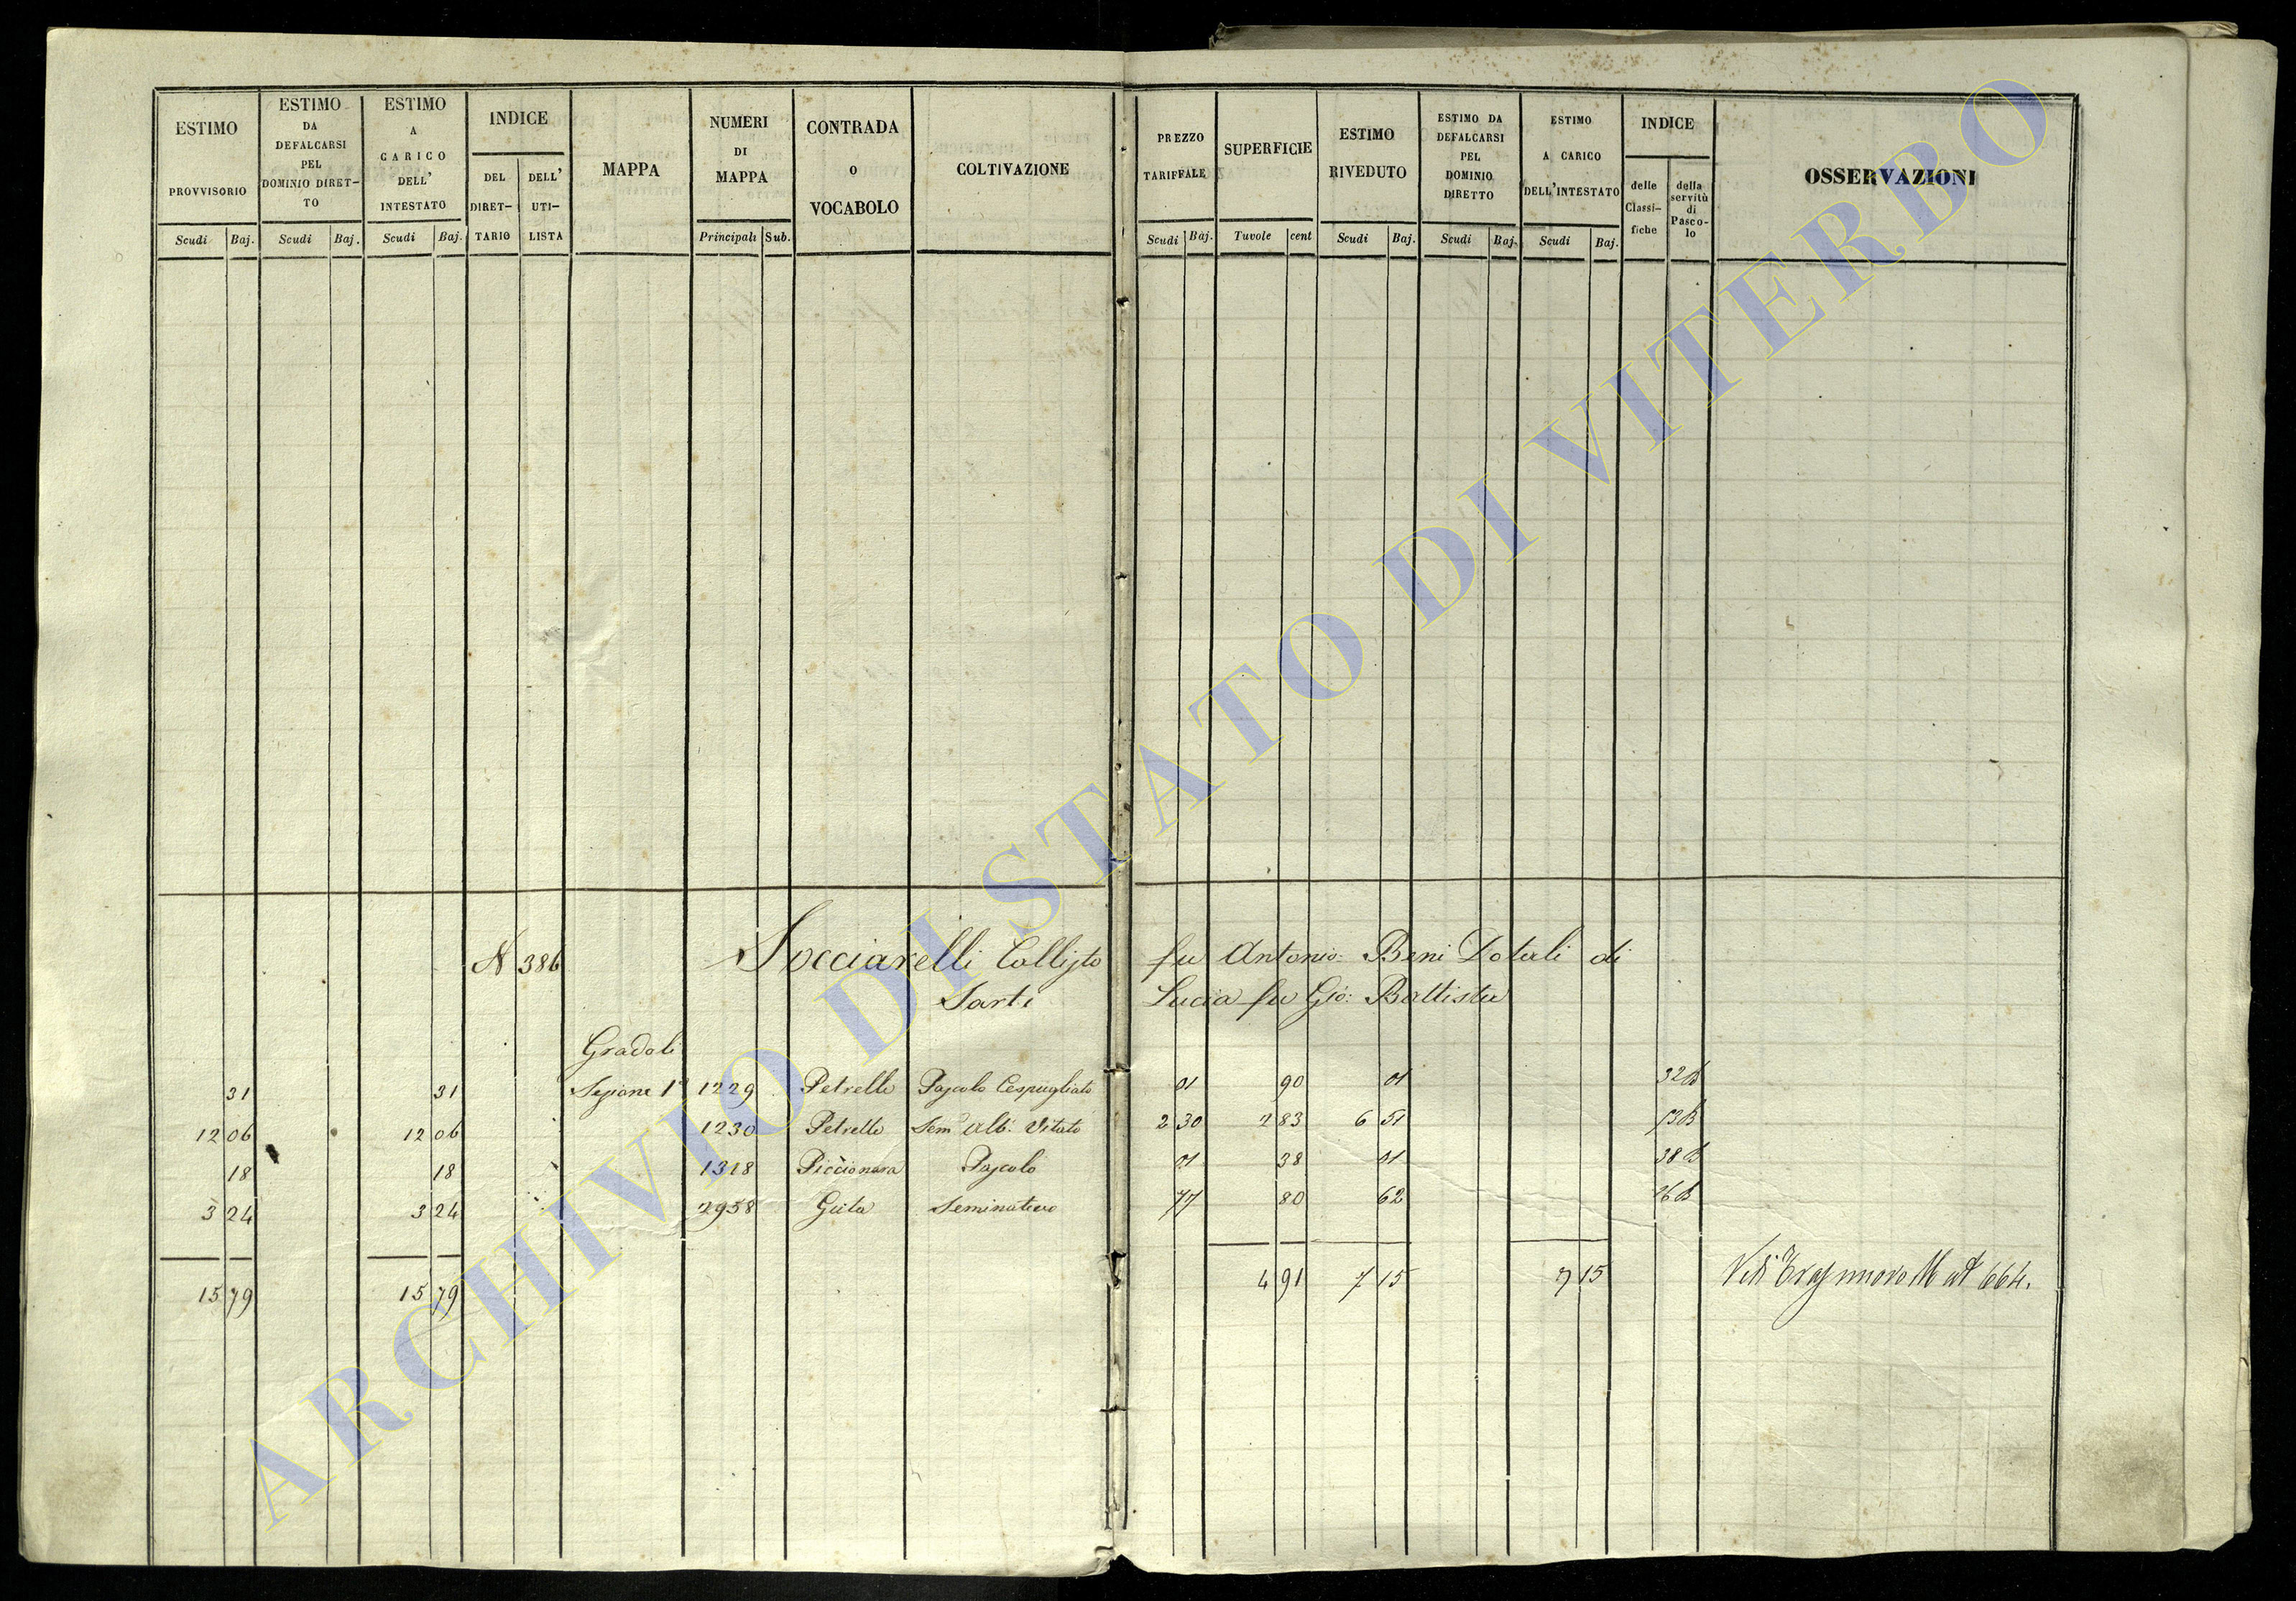 ESTIMO PROVVISORIO Scudi Baj.
ESTIMO DA DEFALCARSI PEL DOMINIO DIRET-TO Scudi Baj.
ESTIMO A CARICO DELL' INTESTATO Scudi Baj.
INDICE DEL DIRET-TARIO DELL' UTI-LISTA
MAPPA
NUMERI DI MAPPA Principali Sub.
CONTRADA O VOCABOLO
COLTIVAZIONE
PREZZO TARIFFALE Scudi Baj.
SUPERFICIE Tavole cent
ESTIMO RIVEDUTO Scudi Baj.
ESTIMO DA DEFALCARSI PEL DOMINIO DIRETTO Scudi Baj.
ESTIMO A CARICO DELL'INTESTATO Scudi Baj.
INDICE delle Classi-fiche della servitù di Pasco-lo
OSSERVAZIONI
N 386 Socciarelli Callisto fu Antonio: Beni Dotali di
Sarti Lucia fu Gio: Battista
Gradoli
31 31 Sezione 1ª 1229 Petrelle Pascolo Cespugliato 01 90 01 32B
12 06 12 06 1230 Petrelle Sem° Alb: Vitato 2 30 2 83 6 51 13B
18 18 1318 Piccionara Pascolo 01 38 01 38B
3 24 3 24 2958 Seminativo 77 80 62 26B
15 79 15 79 4 91 7 15 7 15 664.
ARCHIVIO DI STATO DI VITERBO